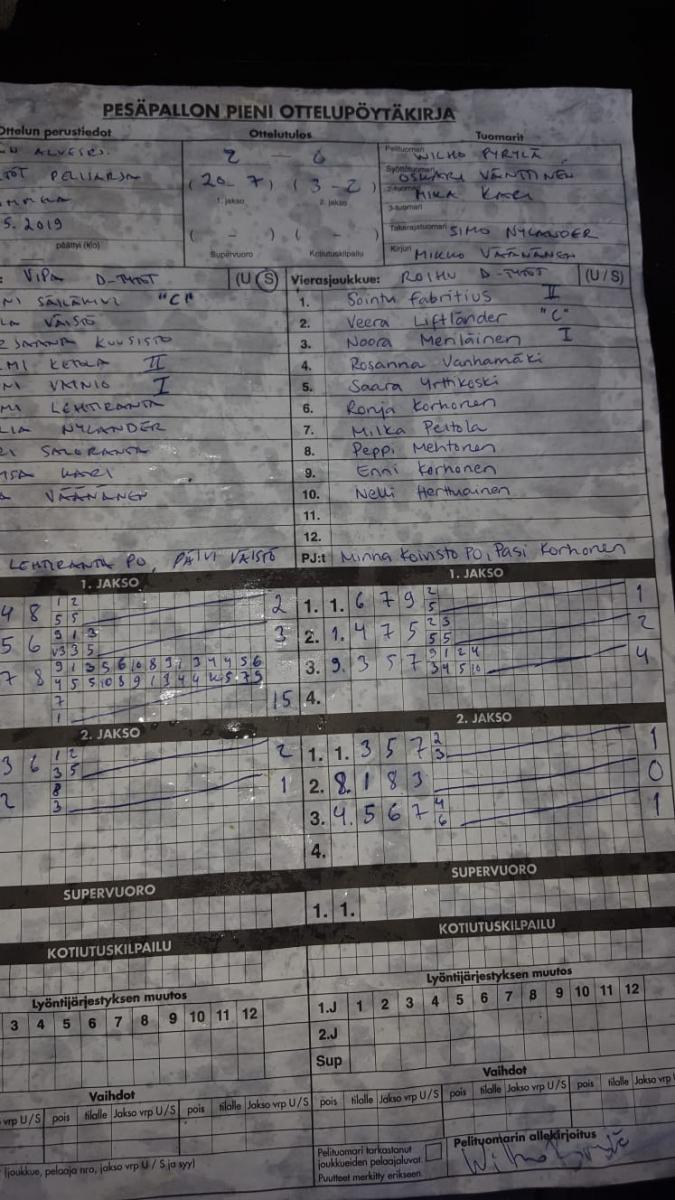 PESÄPALLON PIENI OTTELUPÖYTÄKIRJA
Ottelun perustiedot Ottelutulos Tuomarit
2 - 0 Pelituomari WILHO PYRYLÄ
PELIURSA (20-7) (3-2) Syöttötuomari OSKARI VÄNTTINEN
1. jakso 2. jakso 2-tuomari MIKA KARI
3-tuomari
5. 2019 Takarajatuomari SIMO NYLANDER
päättyi (klo) ( - ) ( - )
Supervuoro Kotiutuskilpailu Kirjuri MIKKO VÄÄNÄNEN
: VIPA D-TYTÖT (U/S) Vierasjoukkue: ROIHU D-TYTÖT (U/S)
"C" 1. Sointu Fabritius II
VÄISTÖ 2. Veera Liftländer "C"
KUUSISTO 3. Noora Meriläinen I
MI KETOLA II 4. Rosanna Vanhamäki
MI VAINIO I 5. Saara Yrttikoski
MI LEHTIRANTA 6. Ronja Korhonen
LIA NYLANDER 7. Milka Peltola
RI SALORANTA 8. Peppi Mehtonen
KARI 9. Enni Korhonen
VÄÄNÄNEN 10. Nelli Herttuainen
11.
12.
LEHTIRANTA PO, PÄIVI VÄISTÖ PJ:t Minna Koivisto PO, Pasi Korhonen
1. JAKSO 1. JAKSO
4 8 1 2 2 1. 1. 6 7 9 2 1
5 5 5
5 6 9 1 3 3 2. 1. 4 7 5 2 3 2
v3 3 5 5 5
7 8 9 1 3 5 6 10 8 3 1 3 4 4 5 6 3. 9. 3 5 7 9 1 2 4 4
3 4 5 10
7 15 4.
1
2. JAKSO 2. JAKSO
3 6 1 2 2 1. 1. 3 5 7 2 1
3 5 3
2 8 1 2. 8. 1 8 3 0
3
3. 4. 5 6 7 4 1
6
4.
SUPERVUORO SUPERVUORO
1. 1.
KOTIUTUSKILPAILU KOTIUTUSKILPAILU
Lyöntijärjestyksen muutos Lyöntijärjestyksen muutos
3 4 5 6 7 8 9 10 11 12 1.J 1 2 3 4 5 6 7 8 9 10 11 12
2.J
Sup
Vaihdot Vaihdot
vrp U/S pois tilalle Jakso vrp U/S pois tilalle Jakso vrp U/S pois tilalle Jakso vrp U/S pois tilalle Jakso vrp U/S pois tilalle Jakso vrp
Pelituomari tarkastanut joukkueiden pelaajaluvat. Pelituomarin allekirjoitus
Puutteet merkitty erikseen.
(joukkue, pelaaja nro, jakso vrp U / S ja syy)